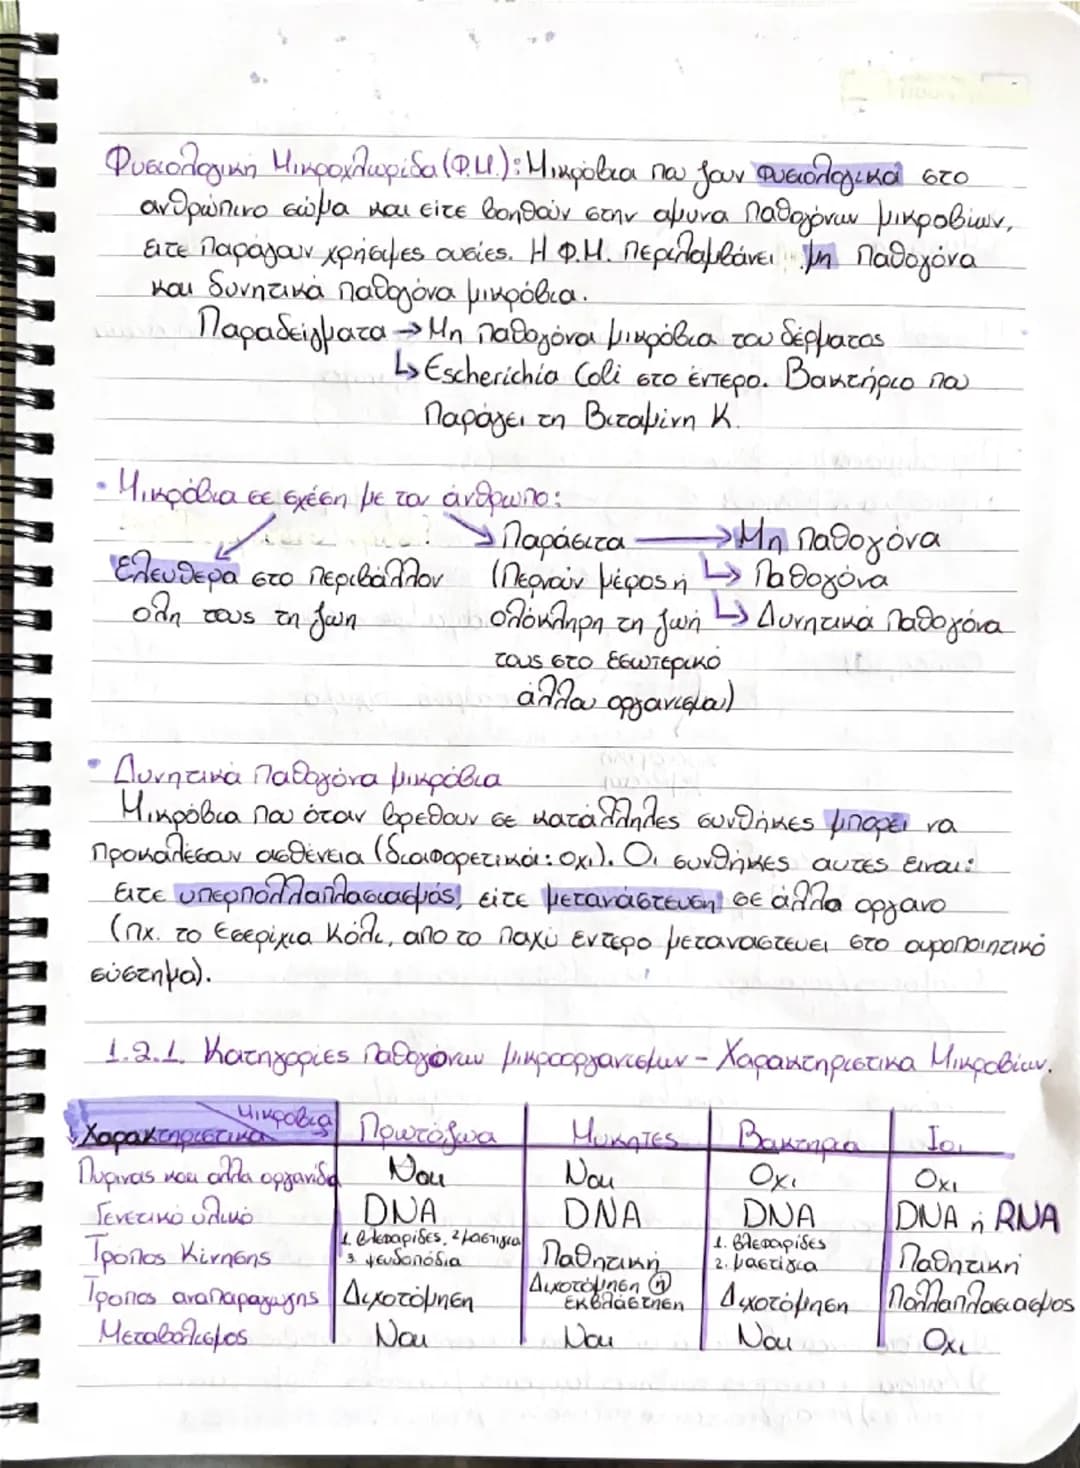 Φυσιολογική Μικροχλωρίδα (Φ.Μ.): Μικρόβια που ζουν φυσιολογικά στο
ανθρώπινο σώμα και είτε βοηθούν στην αμυνα παθογόνων μικροβίων,
είτε παράγουν χρήσιμες ουσίες. Η Φ.Μ. περιλαμβάνει μη παθογόνα
και δυνητικά παθογόνα μικρόβια.
Παραδείγματα → Μη παθογόνα μικρόβια του δέρματος
↳ Escherichia Coli στο έντερο. Βακτήριο που
παράγει τη Βιταμίνη Κ.
• Μικρόβια σε σχέση με τον άνθρωπο:
Παράσιτα → Μη παθογόνα
Ελευθερα στο περιβάλλον (Περνούν μέρος ή ↳ Παθογόνα
ολη τους τη ζωη ολόκληρη τη ζωή ↳ Δυνητικά παθογόνα
τους στο εσωτερικό
άλλου οργανισμού)
• Δυνητικά παθογόνα μικρόβια
Μικρόβια που όταν βρεθουν σε κατάλληλες συνθήκες μπορει να
προκαλέσουν ασθένεια (διαφορετικά: οχι). Οι συνθήκες αυτες ειναι:
ειτε υπερπολλαπλασιασμός, είτε μετανάστευση σε άλλο οργανο
(πχ. το Εσερίχια Κόλι, απο το παχύ εντερο μεταναστευει στο ουροποιητικό
σύστημα).
1.2.1. Κατηγορίες παθογόνων μικροοργανισμων - Χαρακτηριστικα Μικροβίων.
Μικροβια
Χαρακτηριστικα Πρωτόζωα Μυκητες Βακτηρια Ιοι
Πυρινας και αλλα οργανίδια Ναι Ναι Οχι Οχι
Γενετικό υλικό DNA DNA DNA DNA ή RNA
Τρόπος Κίνησης 1. βλεφαρίδες, 2 μαστίγια 3. ψευδοπόδια Παθητική 1. βλεφαρίδες 2. μαστίγια Παθητική
Τροπος αναπαραγωγης Διχοτόμηση Διχοτόμηση ή εκβλάστηση Διχοτόμηση Πολλαπλασιασμος
Μεταβολισμος Ναι Ναι Ναι Οχι